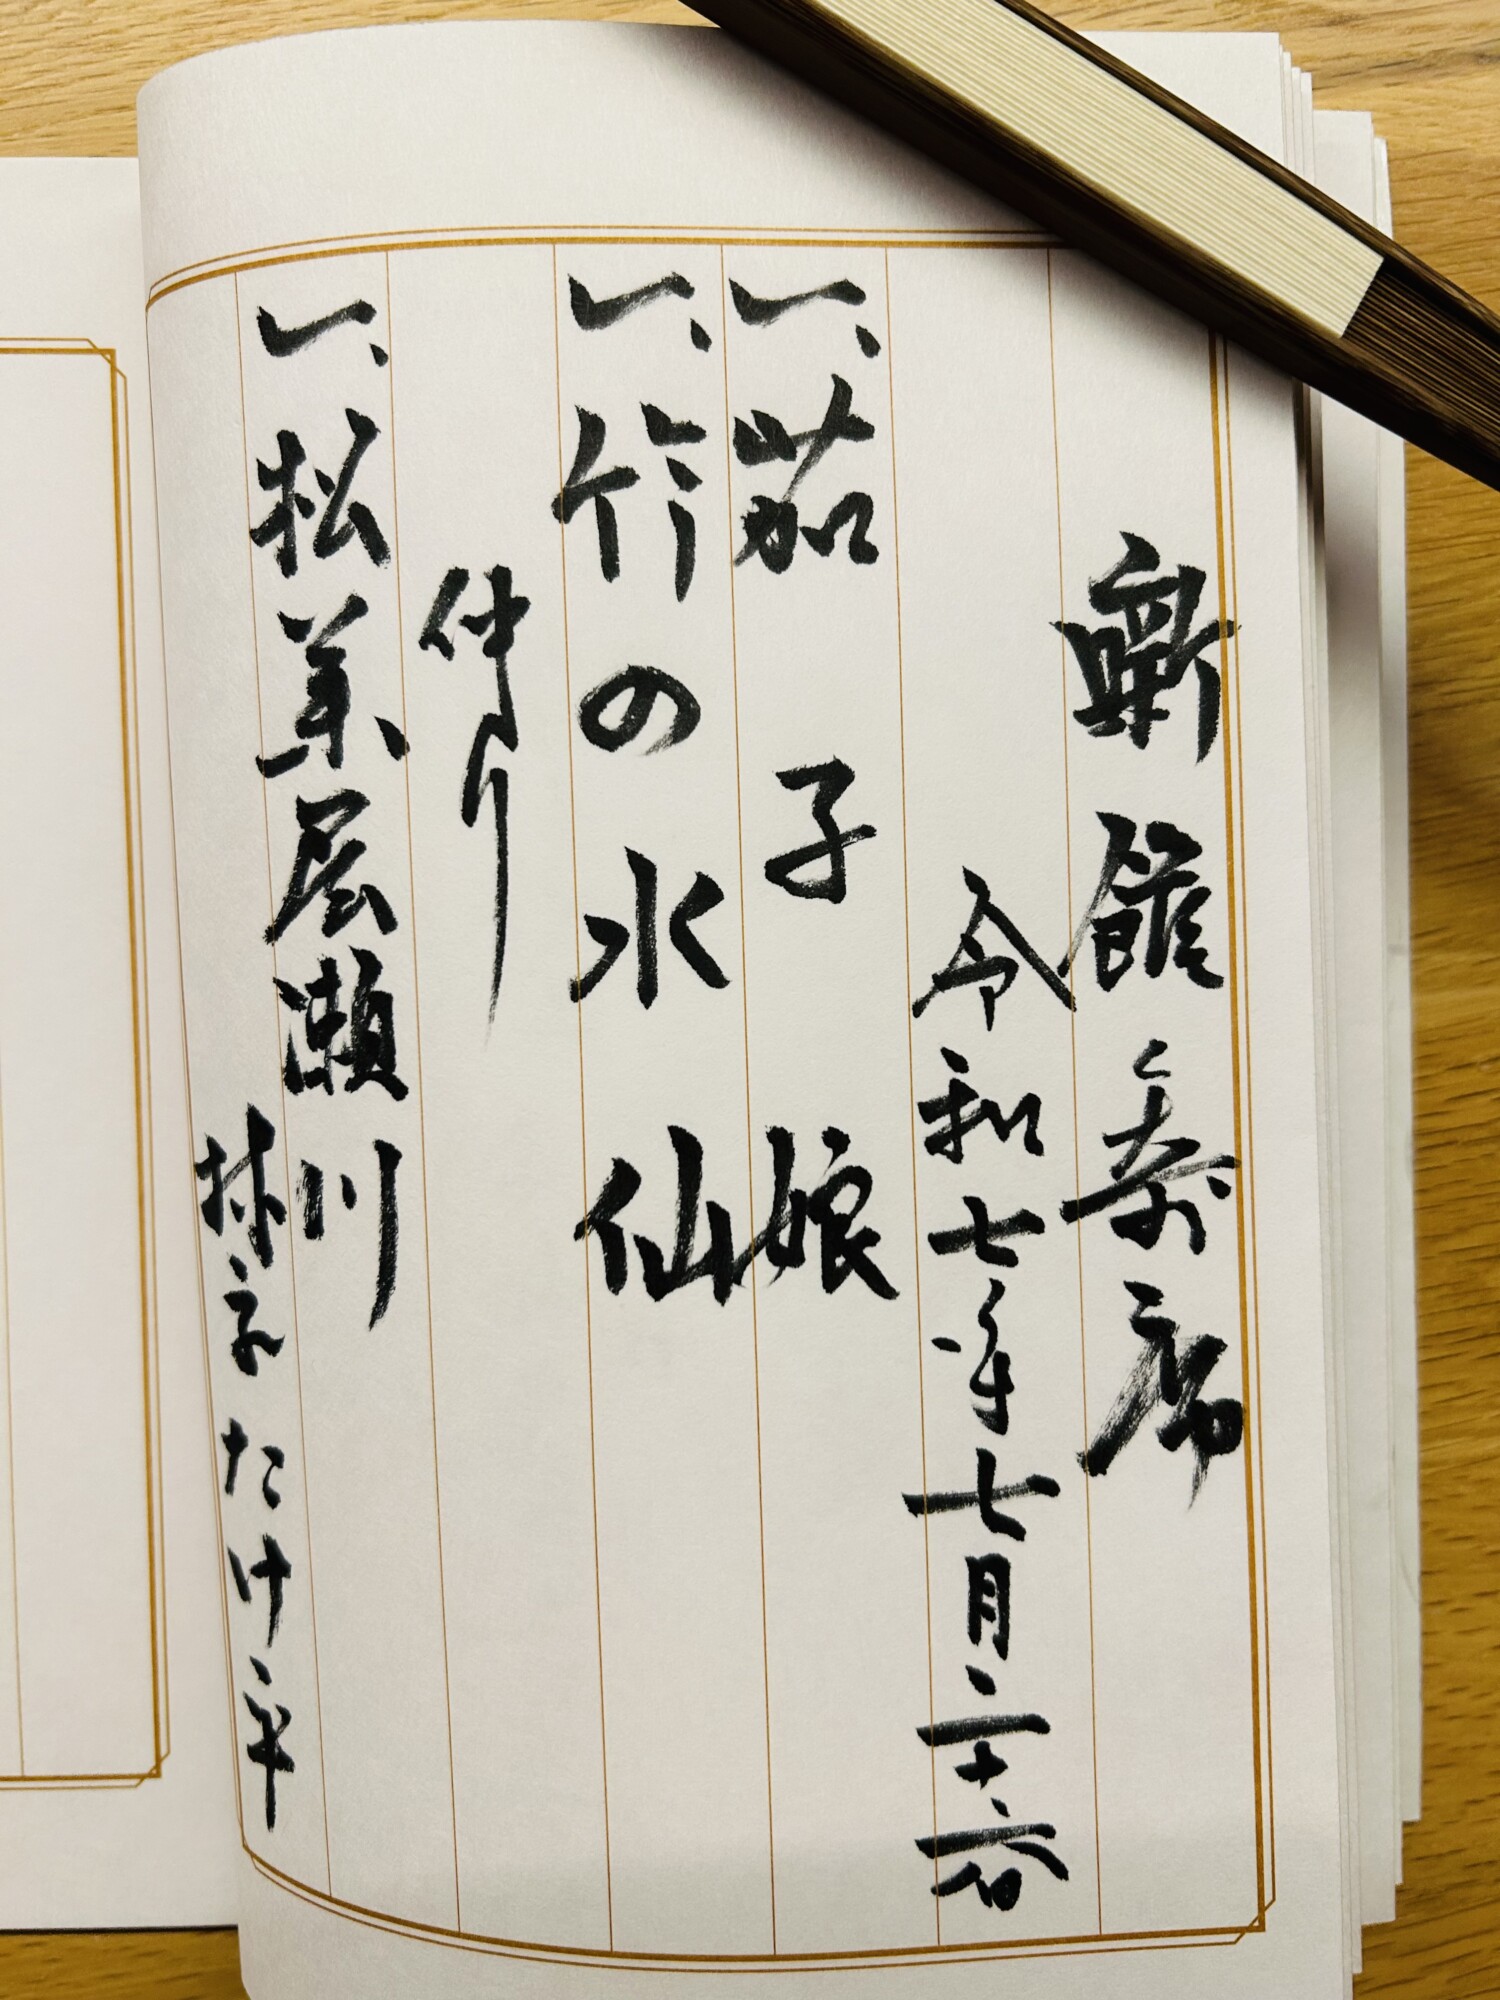 噺館寄席
令和七年七月二十六日
一、茄子娘
一、竹の水仙
仲入り
一、松葉屋瀬川
林家たけ平